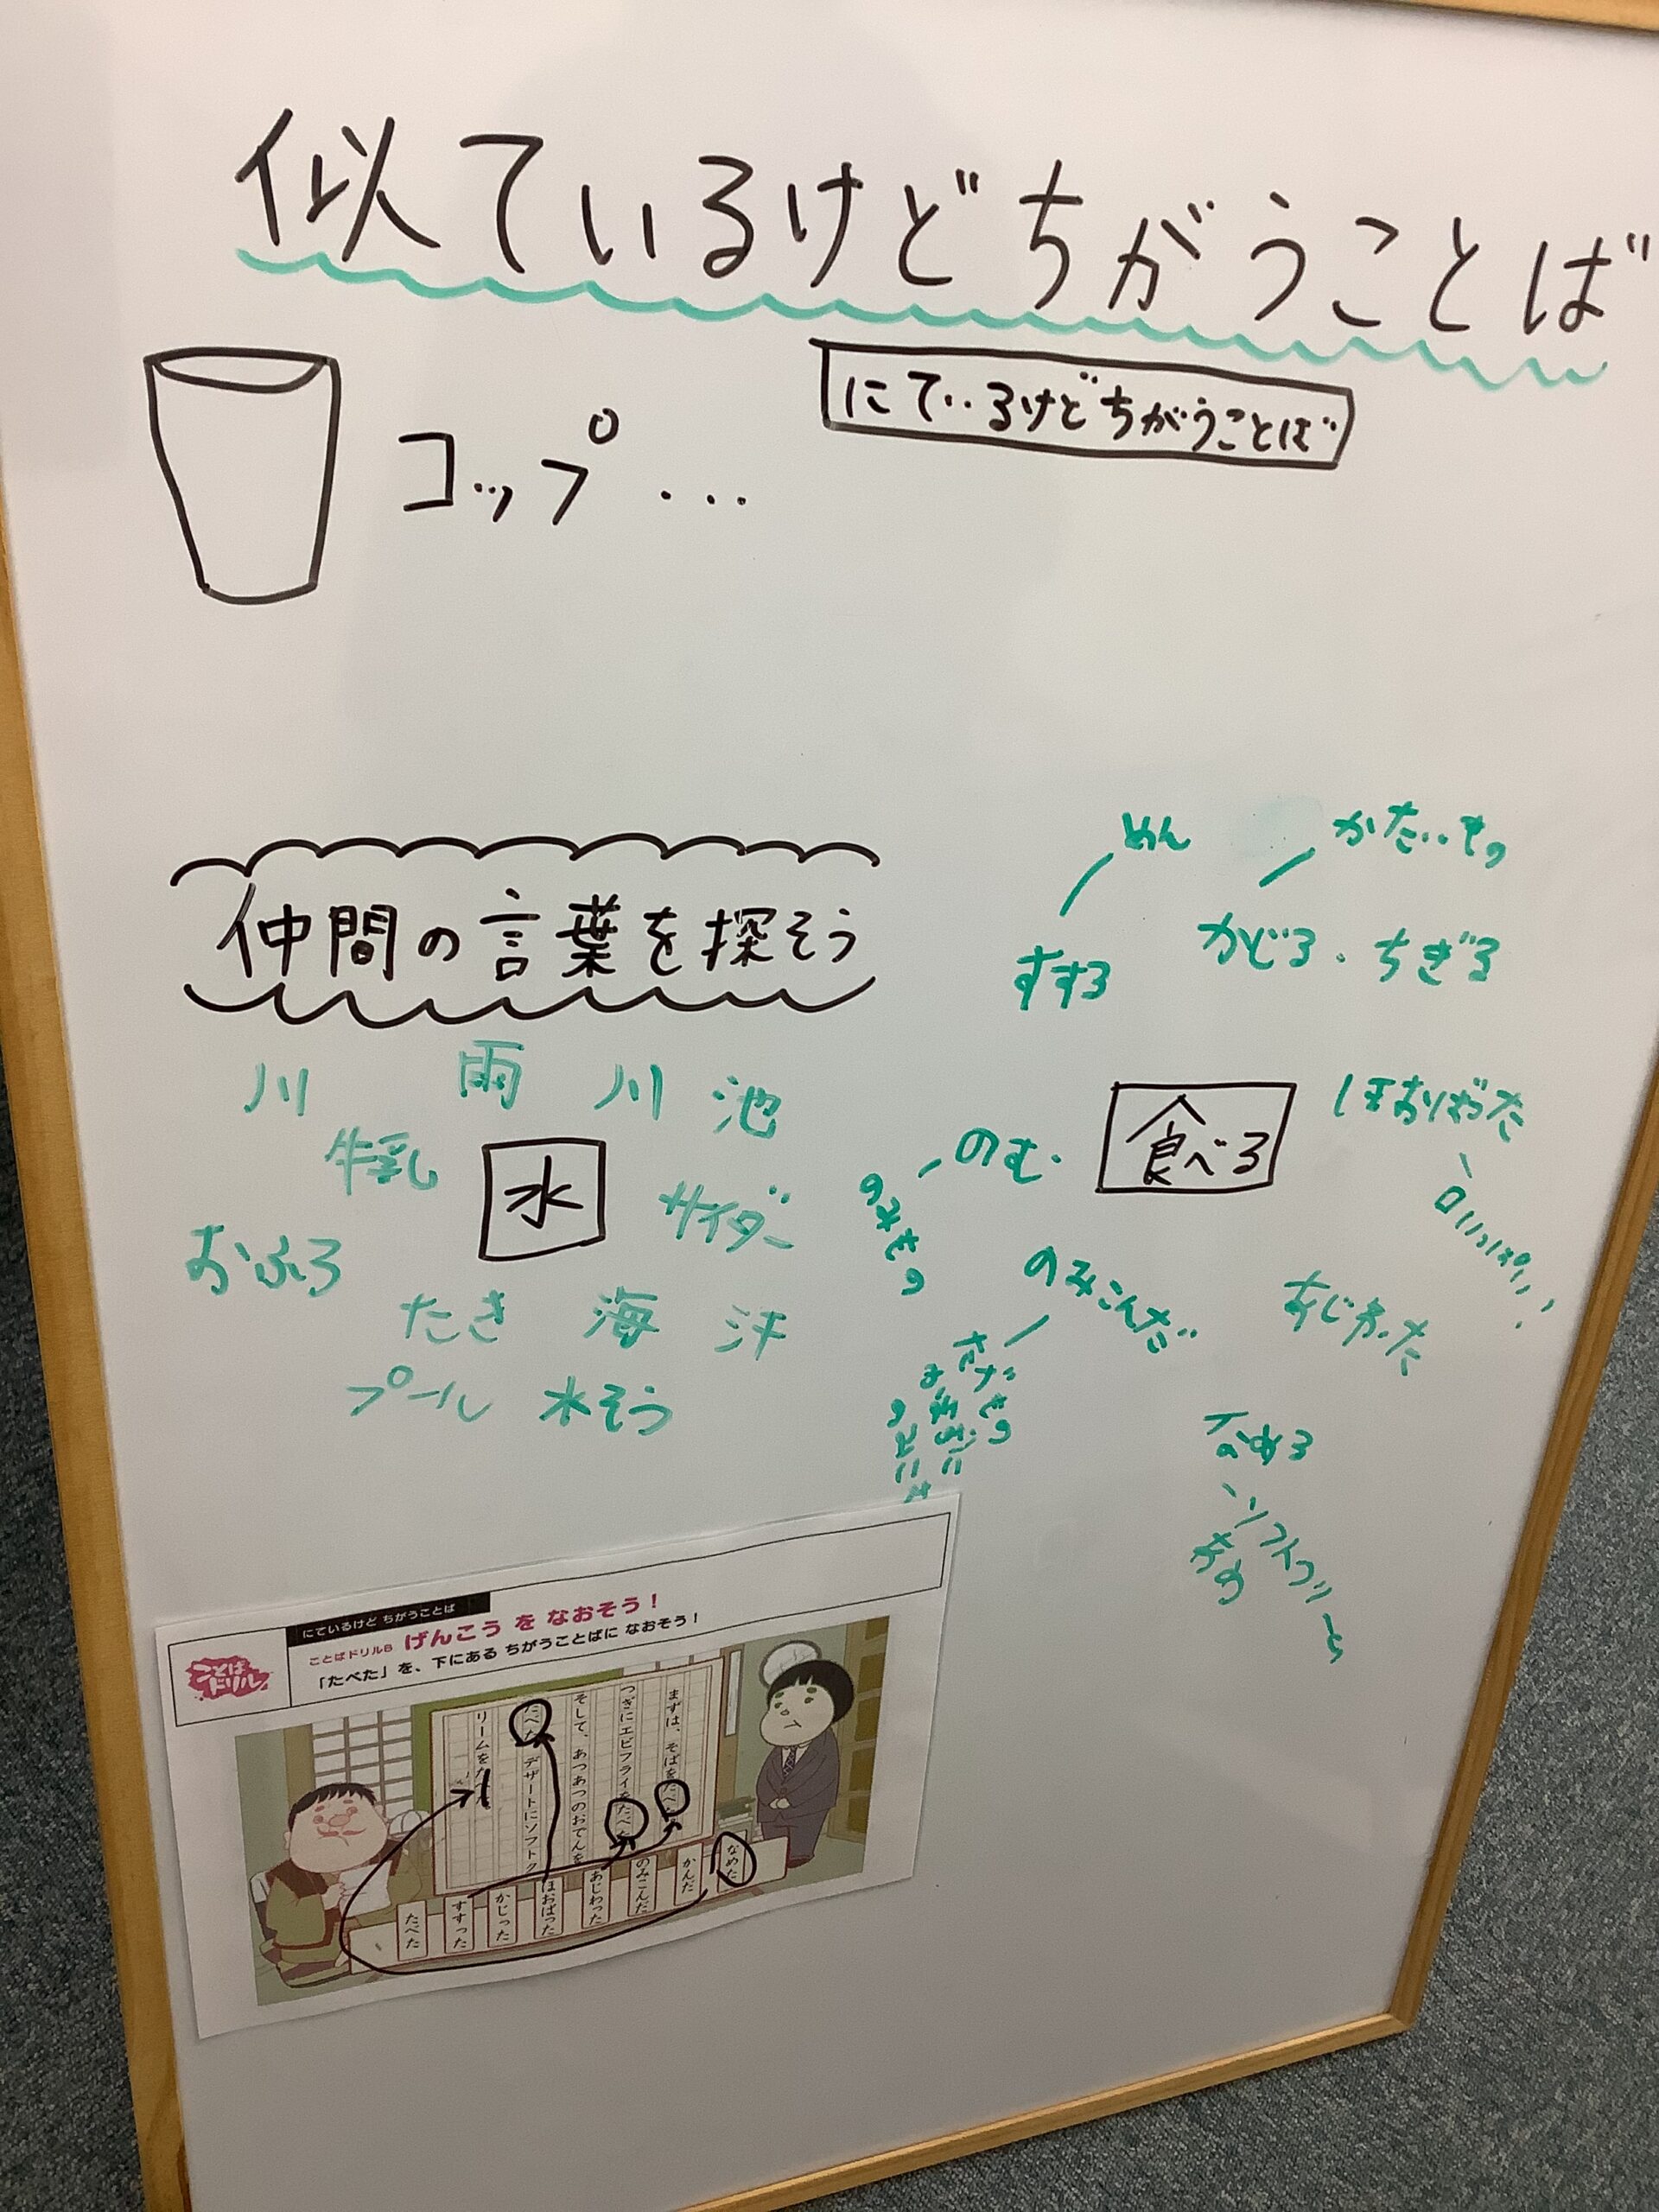 似ているけどちがうことば
にているけどちがうことば
コップ...
仲間の言葉を探そう
川 雨 川 池
牛乳
水
サイダー
おふろ
たき 海 汗
プール 水そう
めん
かたいもの
すする
かじる・ちぎる
食べる
ほおばった
口いっぱい
のむ
のみもの
のみこんだ
あじわった
なめる
ソフトクリーム
あめ
にているけど ちがうことば
ことばドリル
ことばドリルB げんこう を なおそう!
「たべた」を、下にある ちがうことばに なおそう!
まずは、そばをたべ
つぎにエビフライをたべ
そして、あつあつのおでんを
たべた デザートにソフトク
リームをたべた
なめた
かんだ
のみこんだ
あじわった
ほおばった
かじった
すすった
たべた